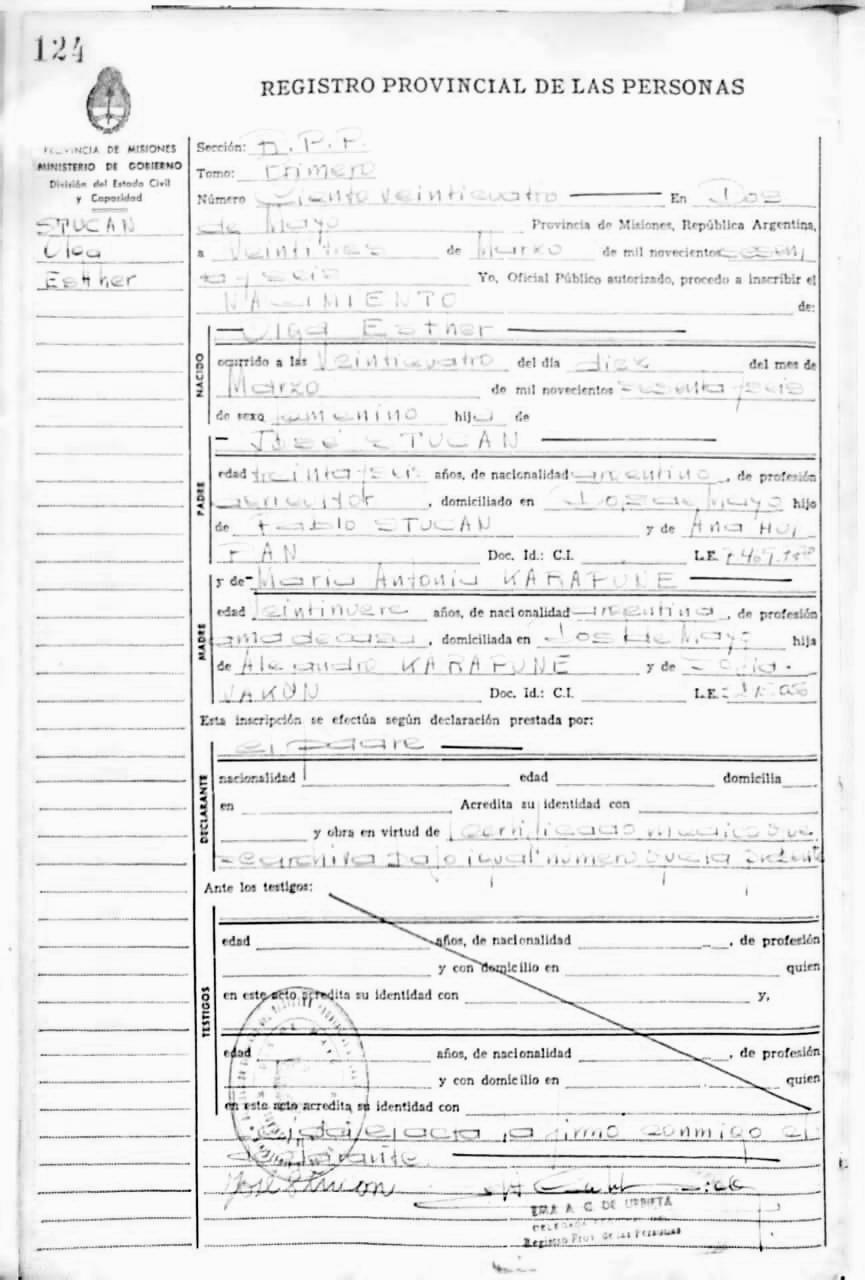 124
REGISTRO PROVINCIAL DE LAS PERSONAS
PROVINCIA DE MISIONES
MINISTERIO DE GOBIERNO
División del Estado Civil
y Capacidad
STUCAN
Olga
Esther
Sección: R.P.P.
Tomo: Primero
Número Ciento veinticuatro En Dos
de Mayo Provincia de Misiones, República Argentina,
a Veintitres de Marzo de mil novecientos sesen
ta y seis Yo, Oficial Público autorizado, procedo a inscribir el
NACIMIENTO de:
NACIDO
Olga Esther
ocurrido a las Veinticuatro del día diez del mes de
Marzo de mil novecientos sesenta y seis
de sexo femenino hija de
PADRE
José STUCAN
edad treinta y seis años, de nacionalidad argentino, de profesión
agricultor, domiciliado en Dos de Mayo hijo
de Pablo STUCAN y de Ana HU
PAN Doc. Id.: C.I. L.E.
y de María Antonia KARAPUNE
MADRE
edad Veintinueve años, de nacionalidad argentina, de profesión
ama de casa, domiciliada en Dos de Mayo hija
de Alejandro KARAPUNE y de
Doc. Id.: C.I. L.E.
Esta inscripción se efectúa según declaración prestada por:
DECLARANTE
el padre
nacionalidad edad domicilia
en Acredita su identidad con
y obra en virtud de certificado médico que
se archiva bajo igual número que la presente
Ante los testigos:
TESTIGOS
edad años, de nacionalidad , de profesión
y con domicilio en quien
en este acto acredita su identidad con y,
edad años, de nacionalidad , de profesión
y con domicilio en quien
en este acto acredita su identidad con
el acta, la firmo conmigo el
declarante.
José Stucan
EMA A. C. DE URRIETA
DELEGADA
Registro Prov. de las Personas